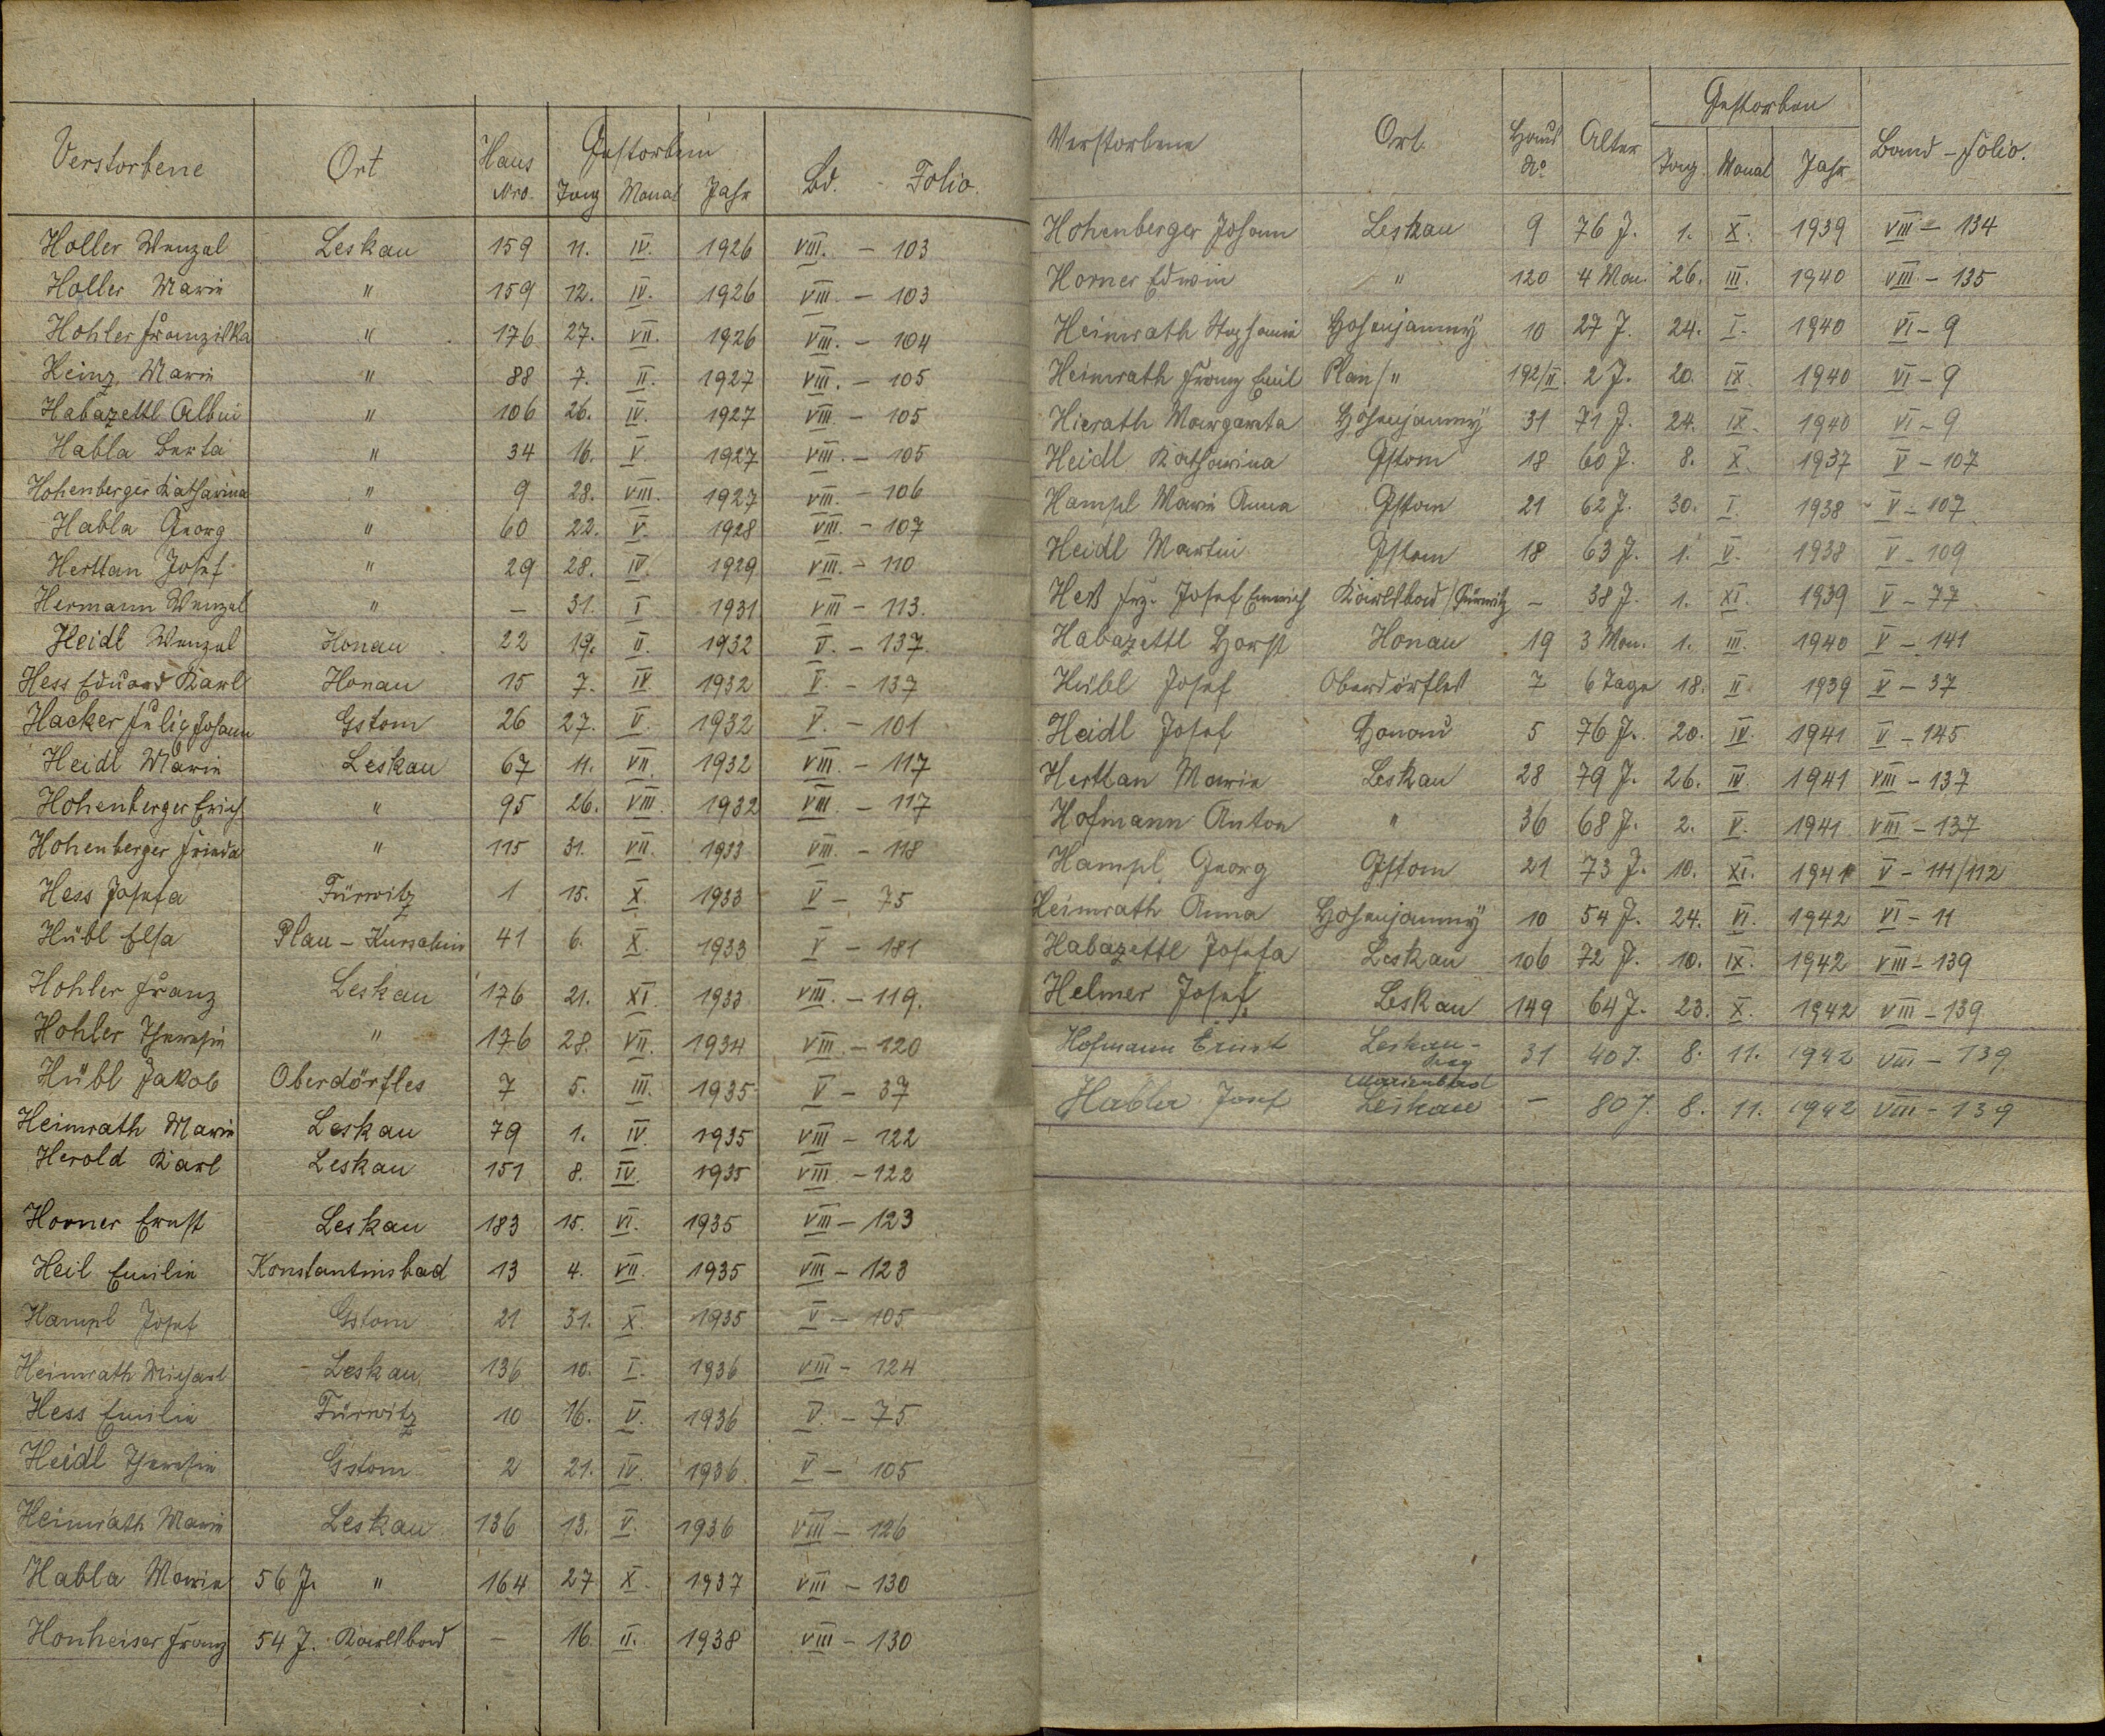 Verstorbene Ort Haus Nro. Gestorben Tag Monat Jahr Bd. - Folio.
Holler Wenzel Leskau 159 11. IV. 1926 VIII. - 103
Holler Marie " 159 12. IV. 1926 VIII. - 103
Hohler Franziska " 176 27. VII. 1926 VIII. - 104
Heinz Marie " 88 7. II. 1927 VIII. - 105
Habazettl Albin " 106 26. IV. 1927 VIII - 105
Habla Berta " 34 16. V. 1927 VIII. - 105
Hohenberger Katharina " 9 28. VIII. 1927 VIII. - 106
Habla Georg " 60 22. V. 1928 VIII. - 107
Herttan Josef " 29 28. IV. 1929 VIII. - 110
Hermann Wenzel " - 31. I 1931 VIII - 113.
Heidl Wenzel Honau 22 19. II. 1932 V. - 137.
Hess Eduard Karl Honau 15 7. IV 1932 V. - 137
Hacker Johann Gstom 26 27. V. 1932 V. - 101
Heidl Marie Leskau 67 11. VII. 1932 VIII. - 117
Hohenberger Erich " 95 26. VIII. 1932 VIII. - 117
Hohenberger Frieda " 115 31. VII. 1933 VIII. - 118
Hess Josefa Fürwitz 1 15. X. 1933 V - 75
Hübl Elsa Plan - Kurschin 41 6. X. 1933 V - 181
Hohler Franz Leskau 176 21. XI. 1933 VIII. - 119.
Hohler Theresie " 176 28. VII. 1934 VIII. - 120
Hübl Jakob Oberdörfles 7 5. III. 1935 V - 37
Heimrath Marie Leskau 79 1. IV. 1935 VIII - 122
Herold Karl Leskau 151 8. IV. 1935 VIII - 122
Horner Ernst Leskau 183 15. VI. 1935 VIII - 123
Heil Emilie Konstantinsbad 13 4. VII. 1935 VIII - 123
Hampl Josef Gstom 21 31. X. 1935 V - 105
Heimrath Michael Leskau 136 10. I. 1936 VIII - 124
Hess Emilie Fürwitz 10 16. V. 1936 V. - 75
Heidl Theresie Gstom 2 21. IV. 1936. V - 105
Heimrath Marie Leskau 136 13. V. 1936 VIII - 126
Habla Marie 56 J. " 164 27 X. 1937 VIII - 130
Honheiser Franz 54 J. Karlsbad - 16. II. 1938 VIII - 130
Verstorbene Ort. Haus No. Alter Gestorben Tag Monat Jahr Band - Folio.
Hohenberger Johann Leskau 9 76 J. 1. X. 1939 VIII - 134
Horner Edwin " 120 4 Mon. 26. III. 1940 VIII - 135
Heimrath Stephanie Hohenjamny 10 27 J. 24. I. 1940 VI - 9
Heimrath Franz Emil Plan/" 192/II. 2 J. 20. IX. 1940 VI - 9
Hierath Margareta Hohenjamny 31 71 J. 24. IX. 1940 VI - 9
Heidl Katharina Gstom 18 60 J. 8. X. 1937 V - 107
Hampl Marie Anna Gstom 21 62 J. 30. I. 1938 V - 107
Heidl Martin Gstom 18 63 J. 1. V. 1938 V - 109
Heß Josef Emerich Karlsbad/Fürwitz - 38 J. 1. XI. 1939 V - 77
Habazettl Horst Honau 19 3 Mon. 1. III. 1940 V - 141
Hübl Josef Oberdörfles 7 6 Tage 18. II 1939 V - 37
Heidl Josef Honau 5 76 J. 20. IV. 1941 V - 145
Herttan Marie Leskau 28 79 J. 26. IV 1941 VIII - 137
Hofmann Anton " 36 68 J. 2. V. 1941 VIII - 137
Hampl Georg Gstom 21 73 J. 10. XI. 1941 V - 111/112
Heimrath Anna Hohenjamny 10 54 J. 24. VI. 1942 VI - 11
Habazettl Josefa Leskau 106 72 J. 10. IX. 1942 VIII - 139
Helmer Josef Leskau 149 64 J. 23. X. 1942 VIII - 139
Hofmann Ernst Leskau - 31 40 J. 8. 11. 1942 VIII - 139
Marienbad
Habla Josef Leskau - 80 J. 8. 11. 1942 VIII - 139